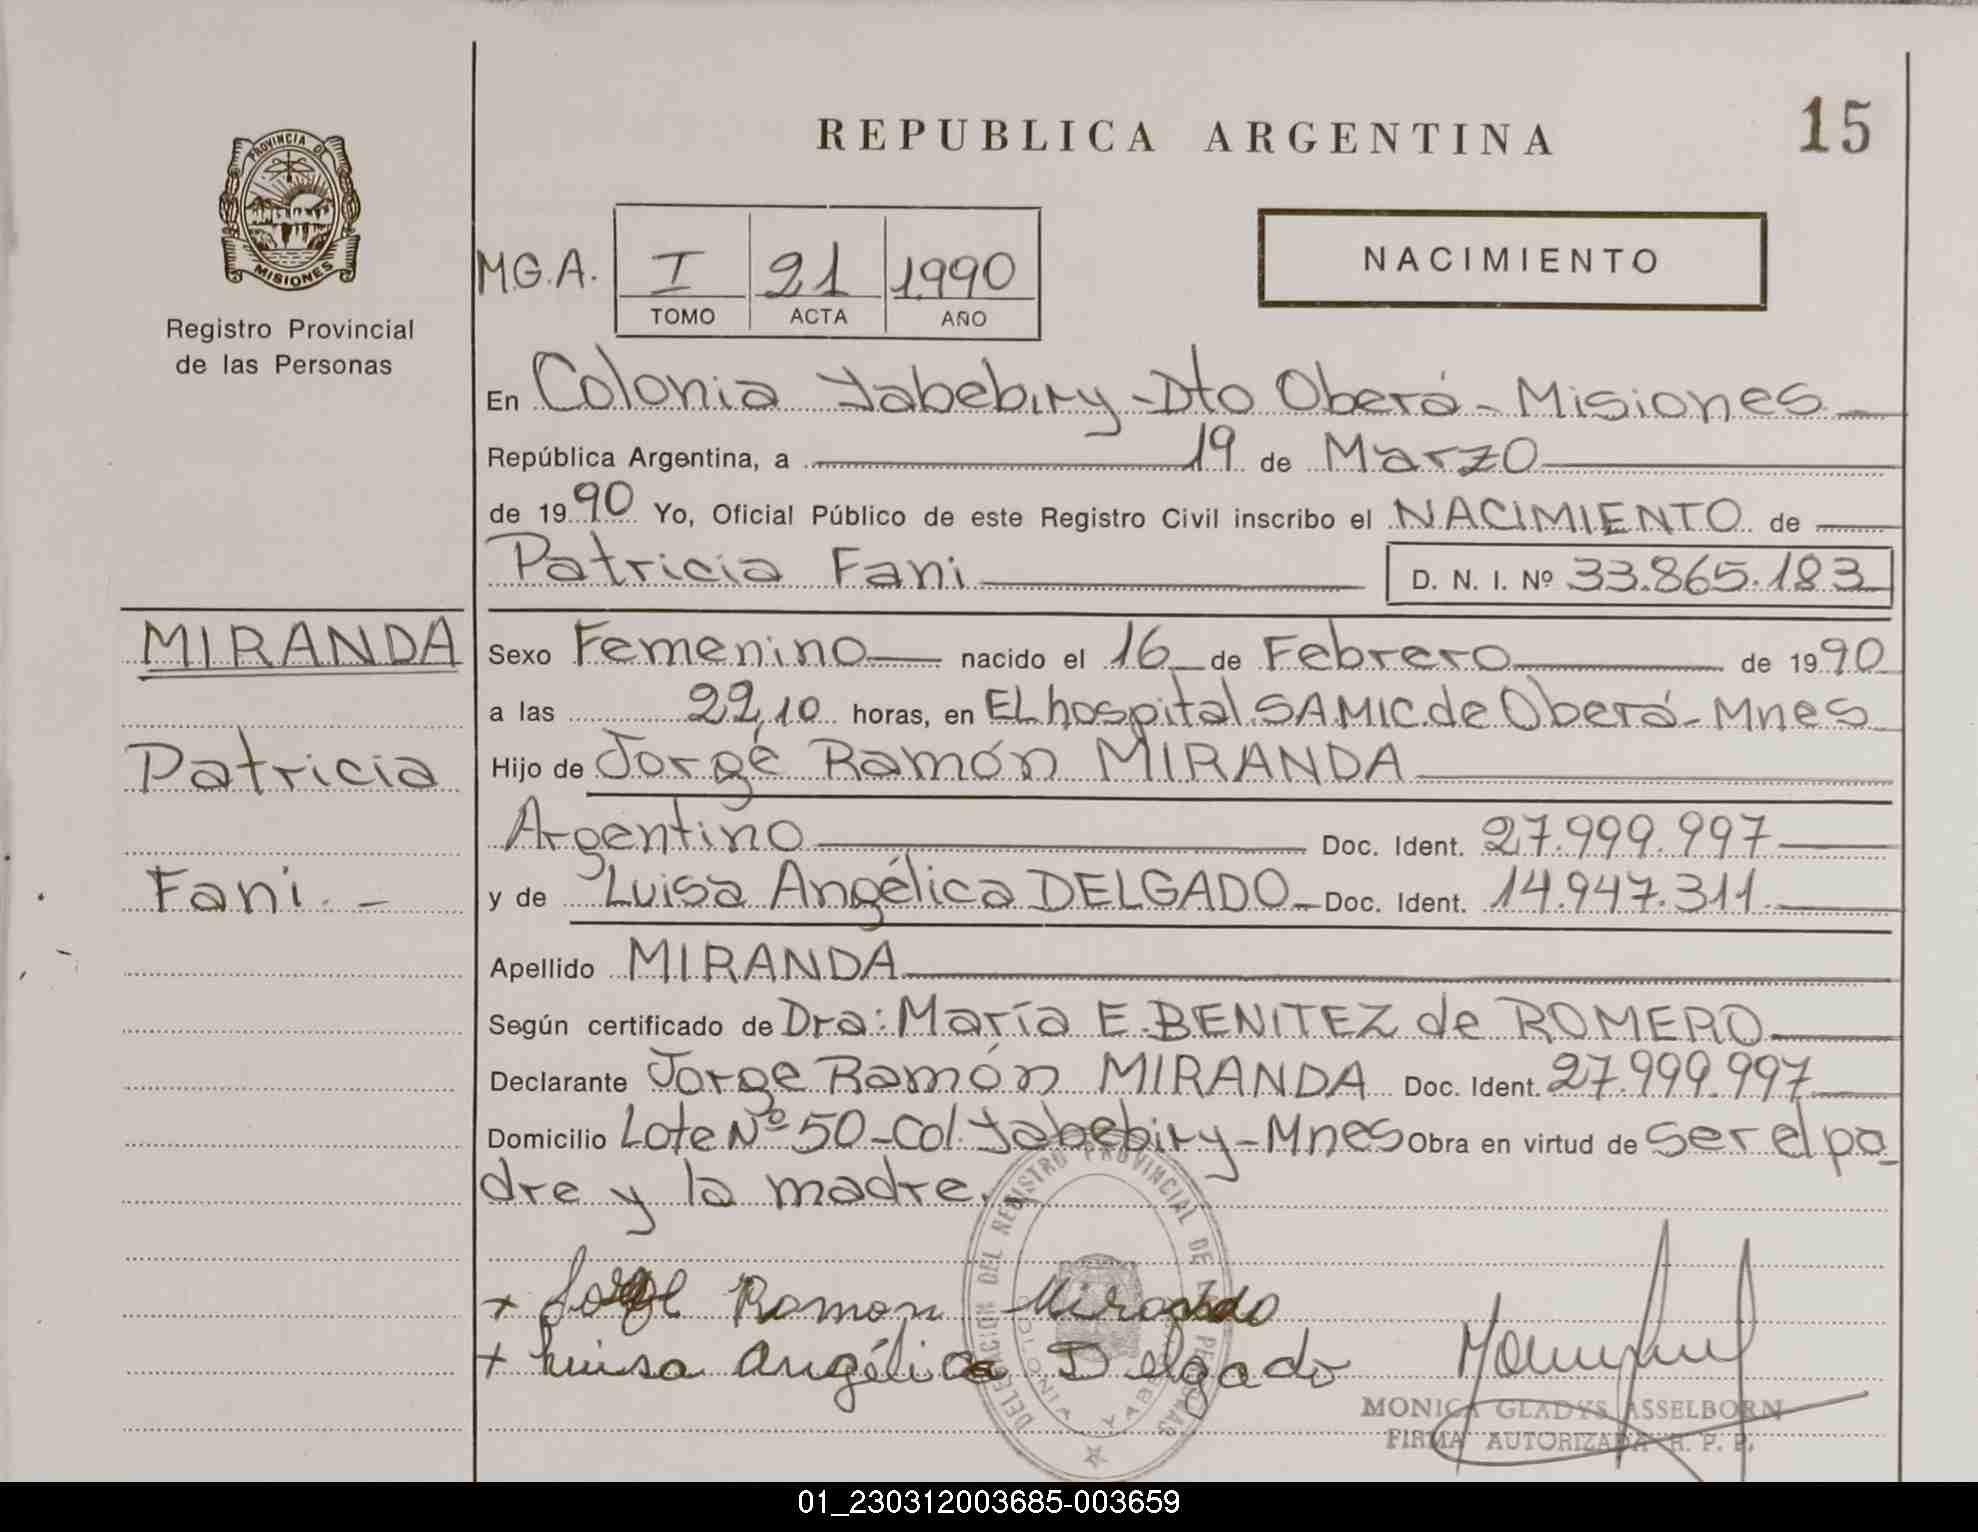 REPUBLICA ARGENTINA
15
PROVINCIA DE
MISIONES
Registro Provincial
de las Personas
M.G.A.
I 21 1.990
TOMO ACTA AÑO
NACIMIENTO
En Colonia Yabebiry-Dto Oberá-Misiones
República Argentina, a 19 de Marzo
de 1990 Yo, Oficial Público de este Registro Civil inscribo el NACIMIENTO de
Patricia Fani
D. N. I. Nº 33.865.183
MIRANDA
Patricia
Fani.-
Sexo Femenino nacido el 16 de Febrero de 1990
a las 22,10 horas, en EL hospital SAMIC.de Oberá-Mnes
Hijo de Jorge Ramón MIRANDA
Argentino Doc. Ident. 27.999.997
y de Luisa Angélica DELGADO Doc. Ident. 14.947.311
Apellido MIRANDA
Según certificado de Dra: María E.BENITEZ de ROMERO
Declarante Jorge Ramón MIRANDA Doc. Ident. 27.999.997
Domicilio Lote Nº 50-Col.Yabebiry-Mnes Obra en virtud de ser el pa
dre y la madre.
DELEGACION DEL REGISTRO PROVINCIAL DE LAS PERSONAS
+ Jorge Ramon Miranda
+ Luisa Angélica Delgado
MONICA GLADYS ASSELBORN
FIRMA AUTORIZADA R. P. P.
01_230312003685-003659